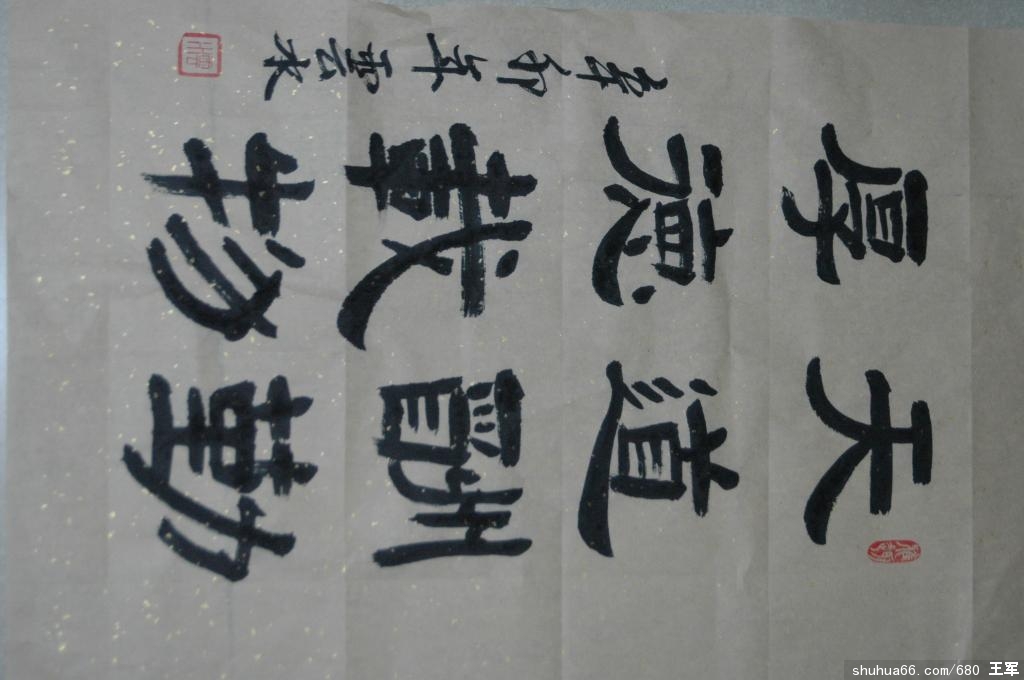 天道酬勤
厚德載物
辛卯年雲水
shuhua66.com/680 王军